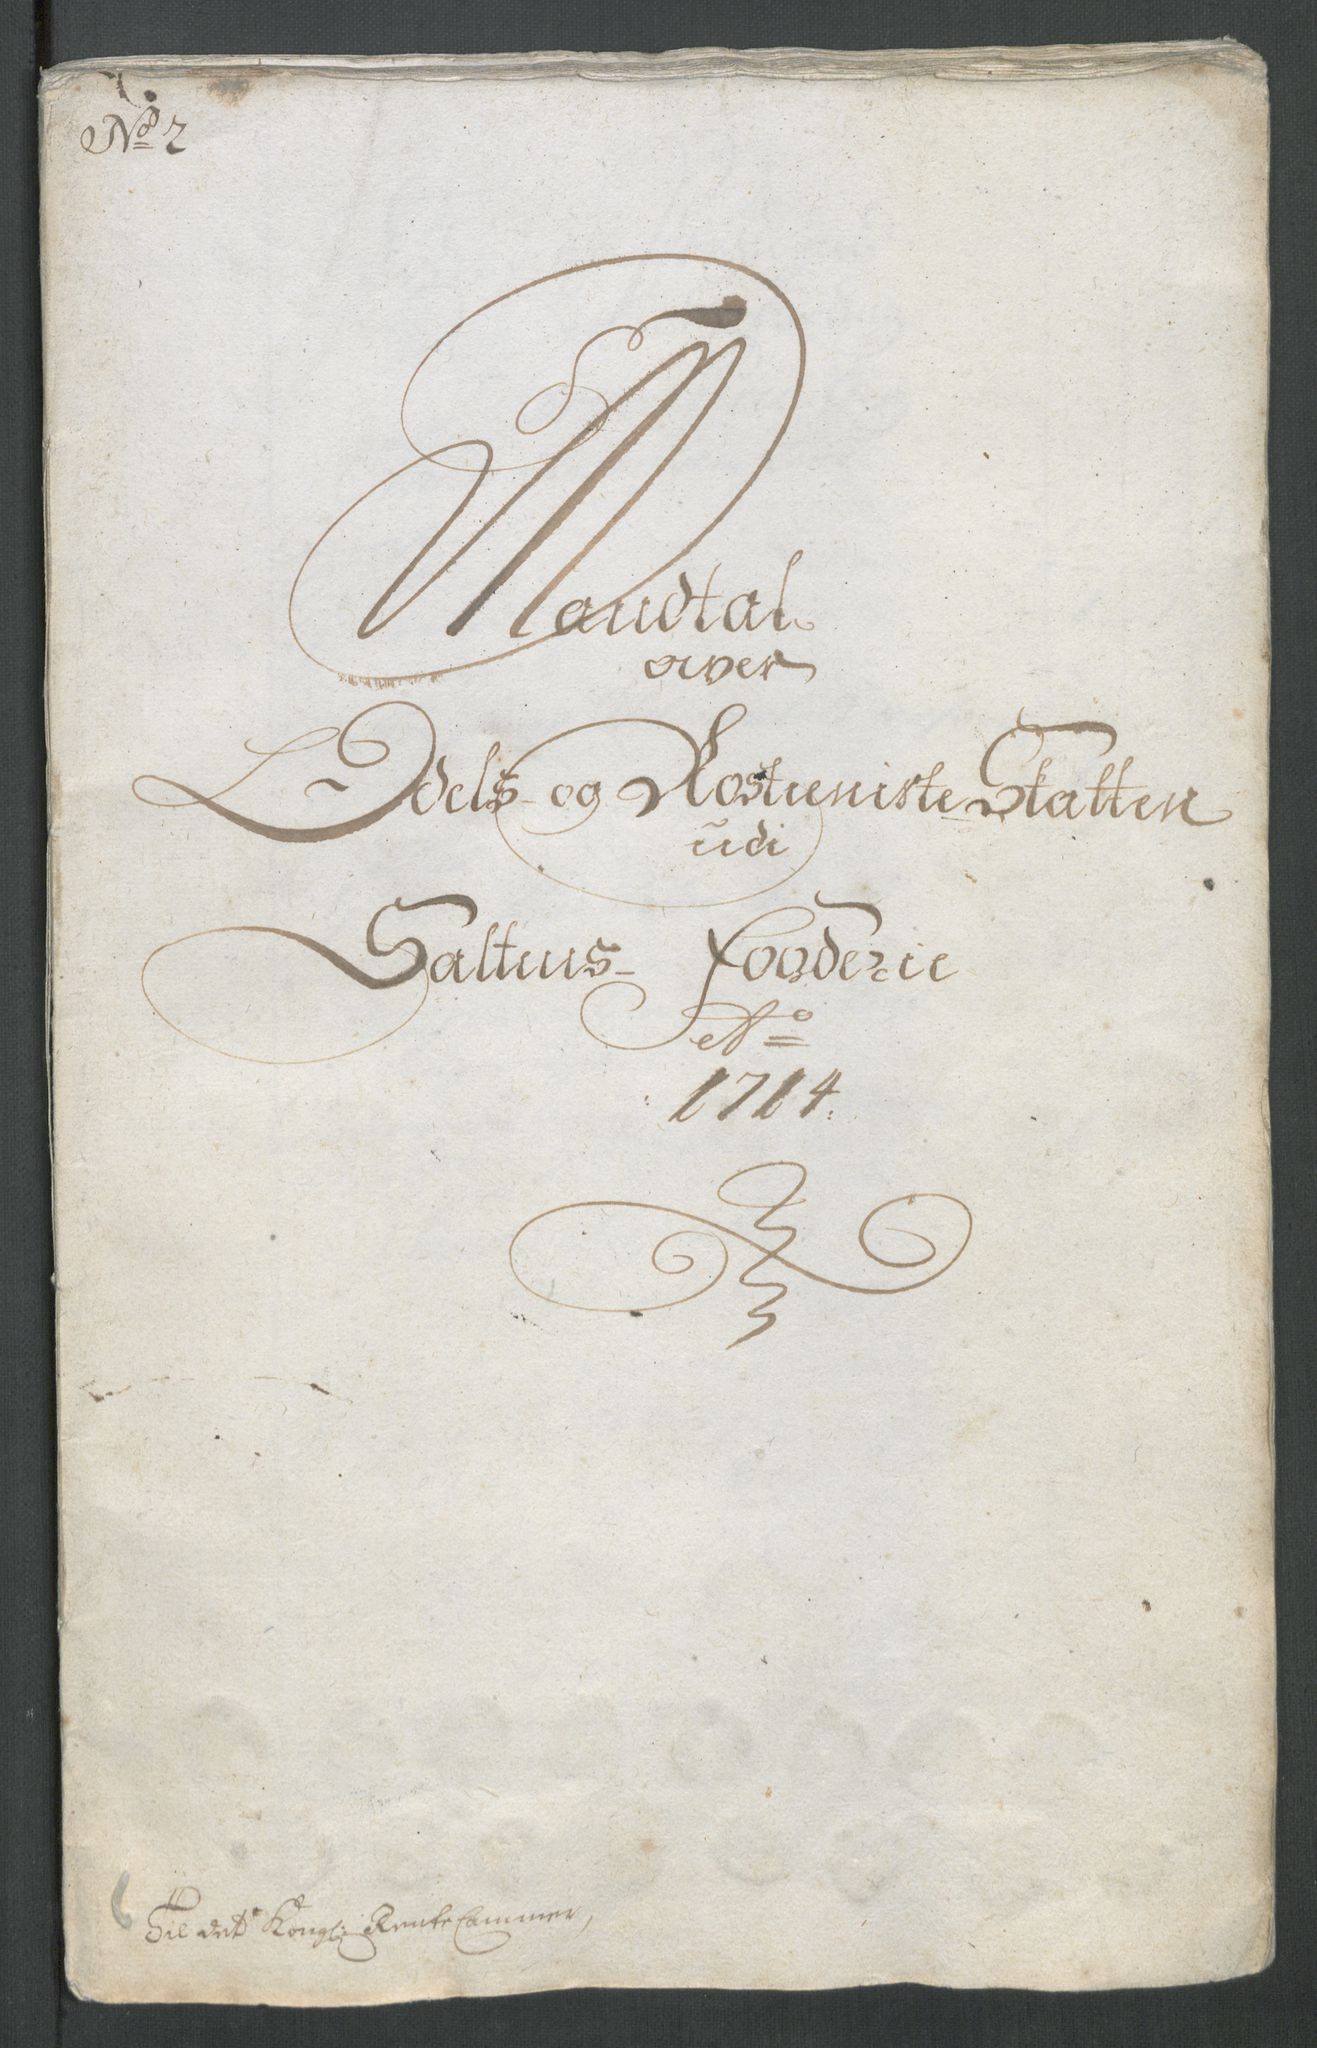 No 2
Mandtal
over
Odels- og Rostieniste Skatten
udi
Saltens- Fogderie
Ao
1714.
Til det Kongl: Rente Cammer,